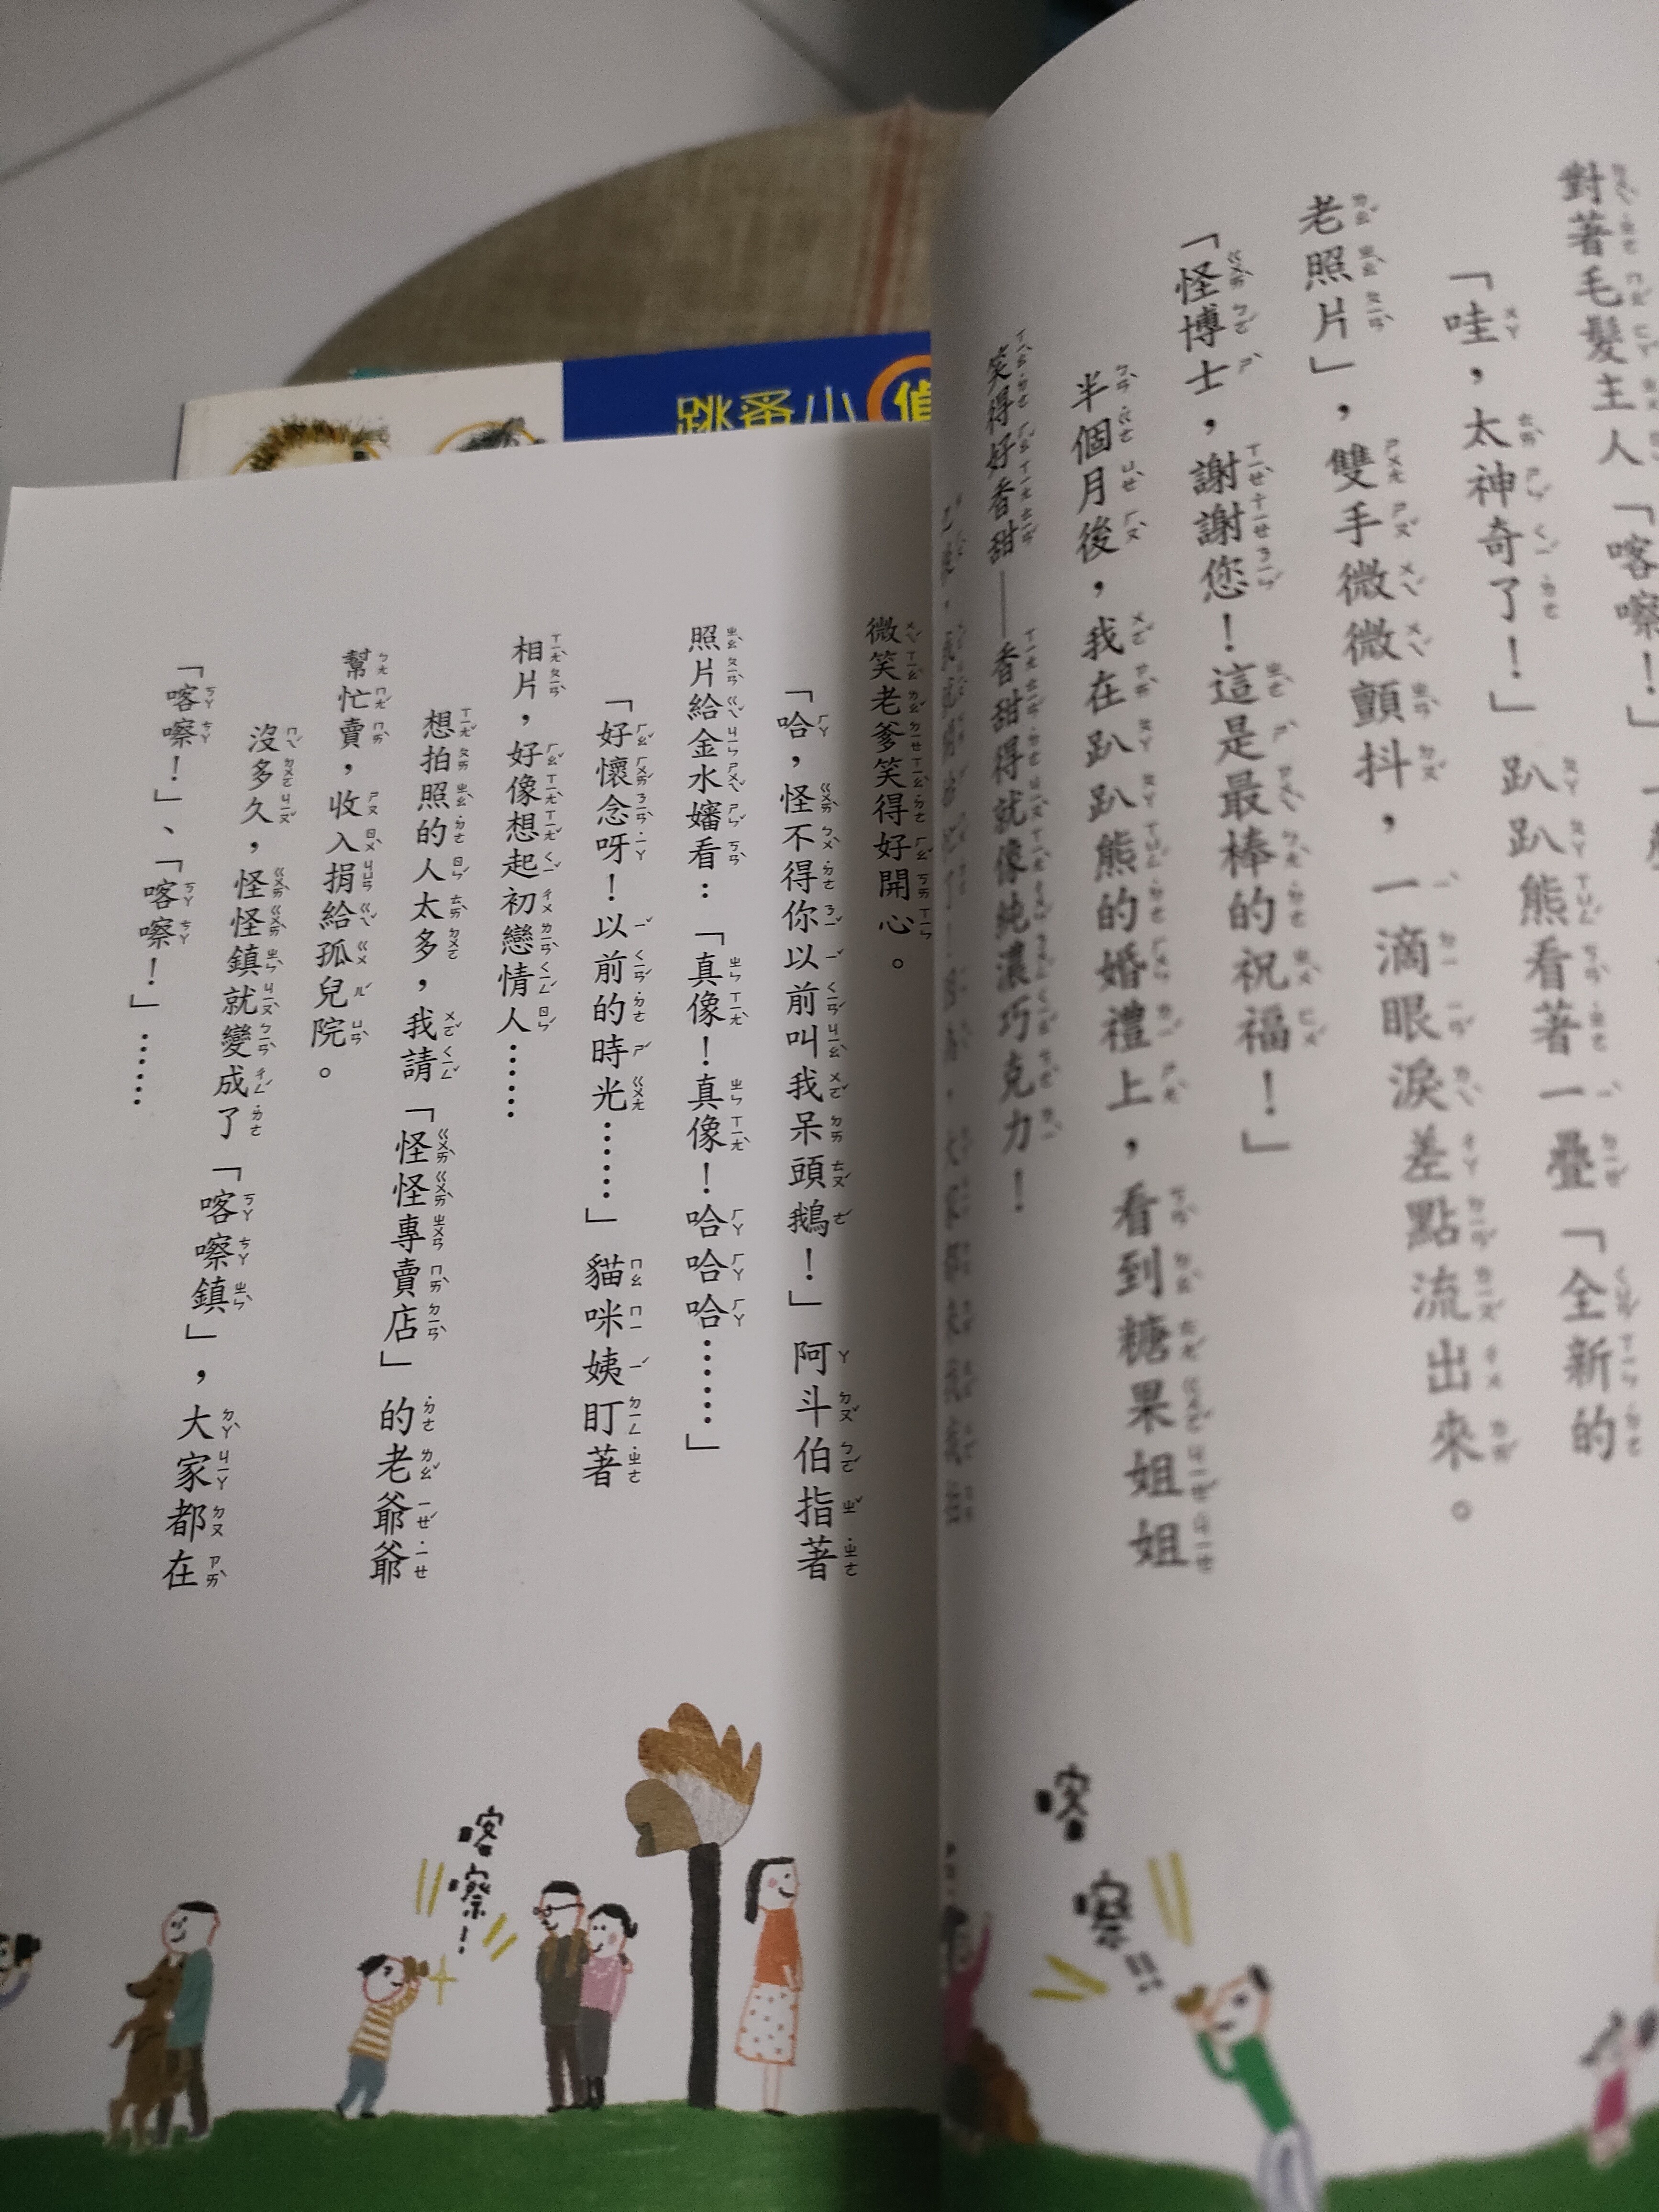 跳蚤小偵
對著毛髮主人「喀嚓!」一
「哇,太神奇了!」趴趴熊看著一疊「全新的
老照片」,雙手微微顫抖,一滴眼淚差點流出來。
「怪博士,謝謝您!這是最棒的祝福!」
半個月後,我在趴趴熊的婚禮上,看到糖果姐姐
笑得好香甜——香甜得就像純濃巧克力!
微笑老爹笑得好開心。
「哈,怪不得你以前叫我呆頭鵝!」阿斗伯指著
照片給金水嬸看:「真像!真像!哈哈哈……」
「好懷念呀!以前的時光……」貓咪姨盯著
相片,好像想起初戀情人……
想拍照的人太多,我請「怪怪專賣店」的老爺爺
幫忙賣,收入捐給孤兒院。
沒多久,怪怪鎮就變成了「喀嚓鎮」,大家都在
「喀嚓!」、「喀嚓!」……
喀嚓!!
喀嚓!